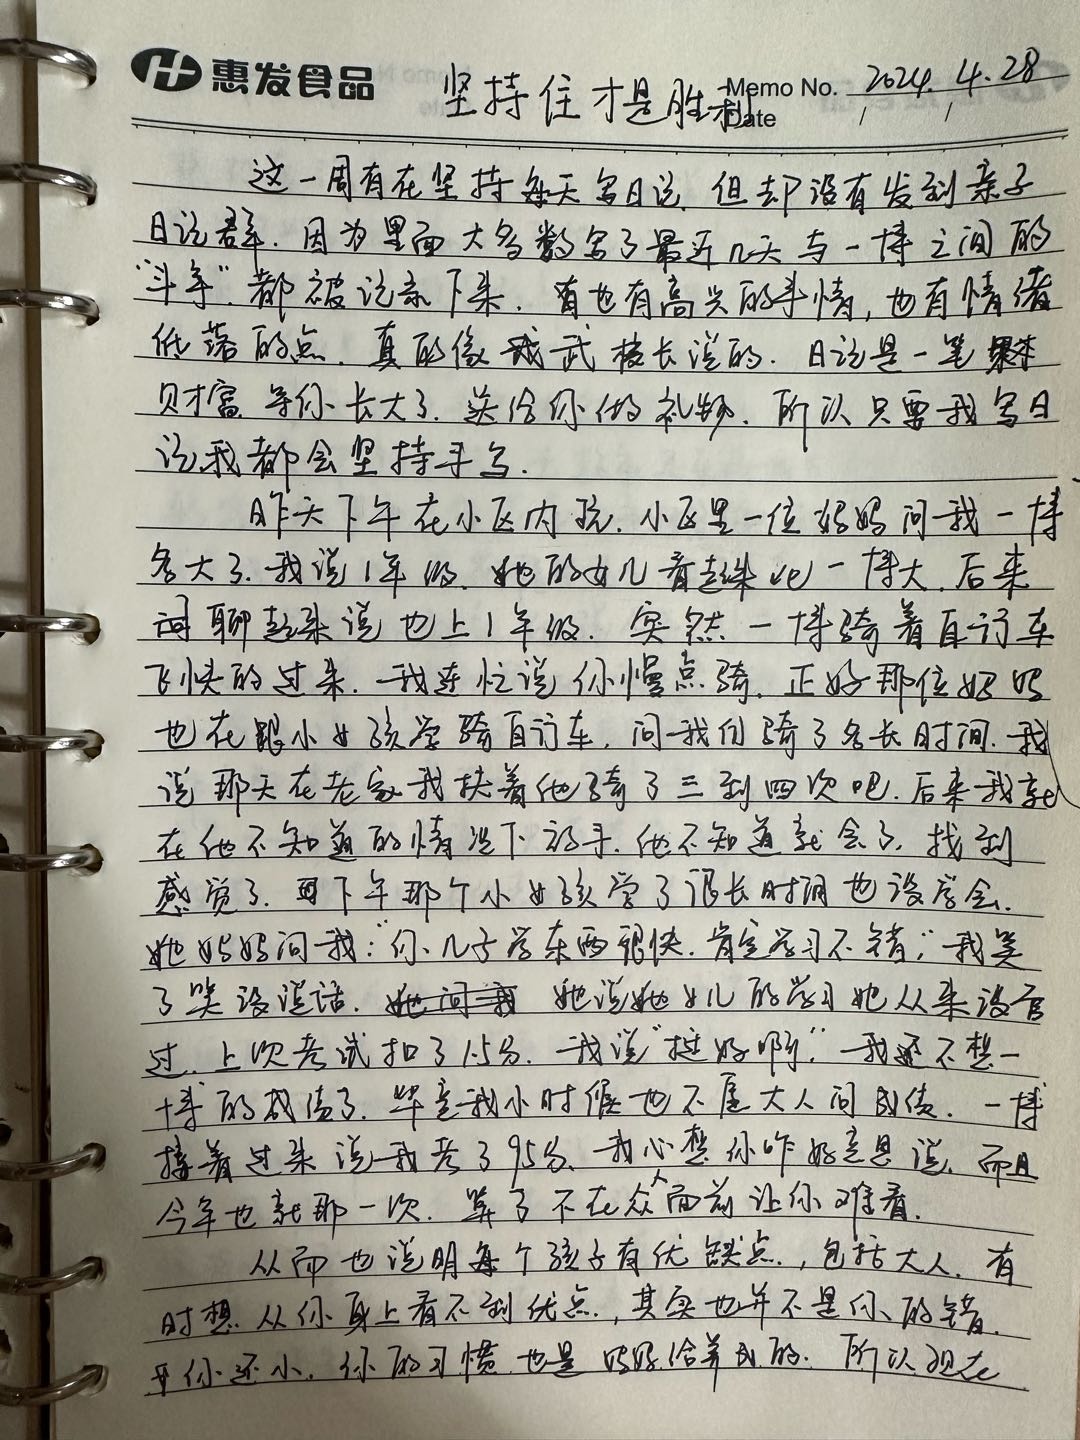 惠发食品
坚持住才是胜利
Memo No. 2024.4.28
Date / /
这一周有在坚持每天写日记,但却没有发到亲子
日记群.因为里面大多数写了最近几天与一博之间的
“斗争”.都被记录下来.有也有高兴的事情,也有情绪
低落的点.真的像 武校长说的.日记是一笔
财富 等你长大了.送给你做礼物.所以只要我写日
记我都会坚持手写.
昨天下午在小区内玩.小区里一位妈妈问我一博
多大了.我说1年级.她的女儿看起来比一博大.后来
聊起来说也上1年级.突然一博骑着自行车
飞快的过来.我连忙说你慢点骑.正好那位妈妈
也在跟小女孩学骑自行车.问我们骑了多长时间.我
说那天在老家我扶着他骑了三到四次吧.后来我就
在他不知道的情况下放手.他不知道就会了.找到
感觉了.下午那个小女孩学了很长时间也没学会.
她妈妈问我:“你儿子学东西很快.肯定学习不错.”我笑
了笑没说话.她问我 她说她女儿的学习她从来没管
过.上次考试扣了1.5分.我说“挺好啊”.我还不想一
博的成绩了.毕竟我小时候也不愿大人问成绩.一博
接着过来说我考了95分.我心想你咋好意思说.而且
今年也就那一次.算了不在众人面前让你难看.
从而也说明每个孩子有优缺点.,包括大人.有
时想从你身上看不到优点.,其实也并不是你的错.
你还小.你的习惯也是妈妈给养成的.所以现在